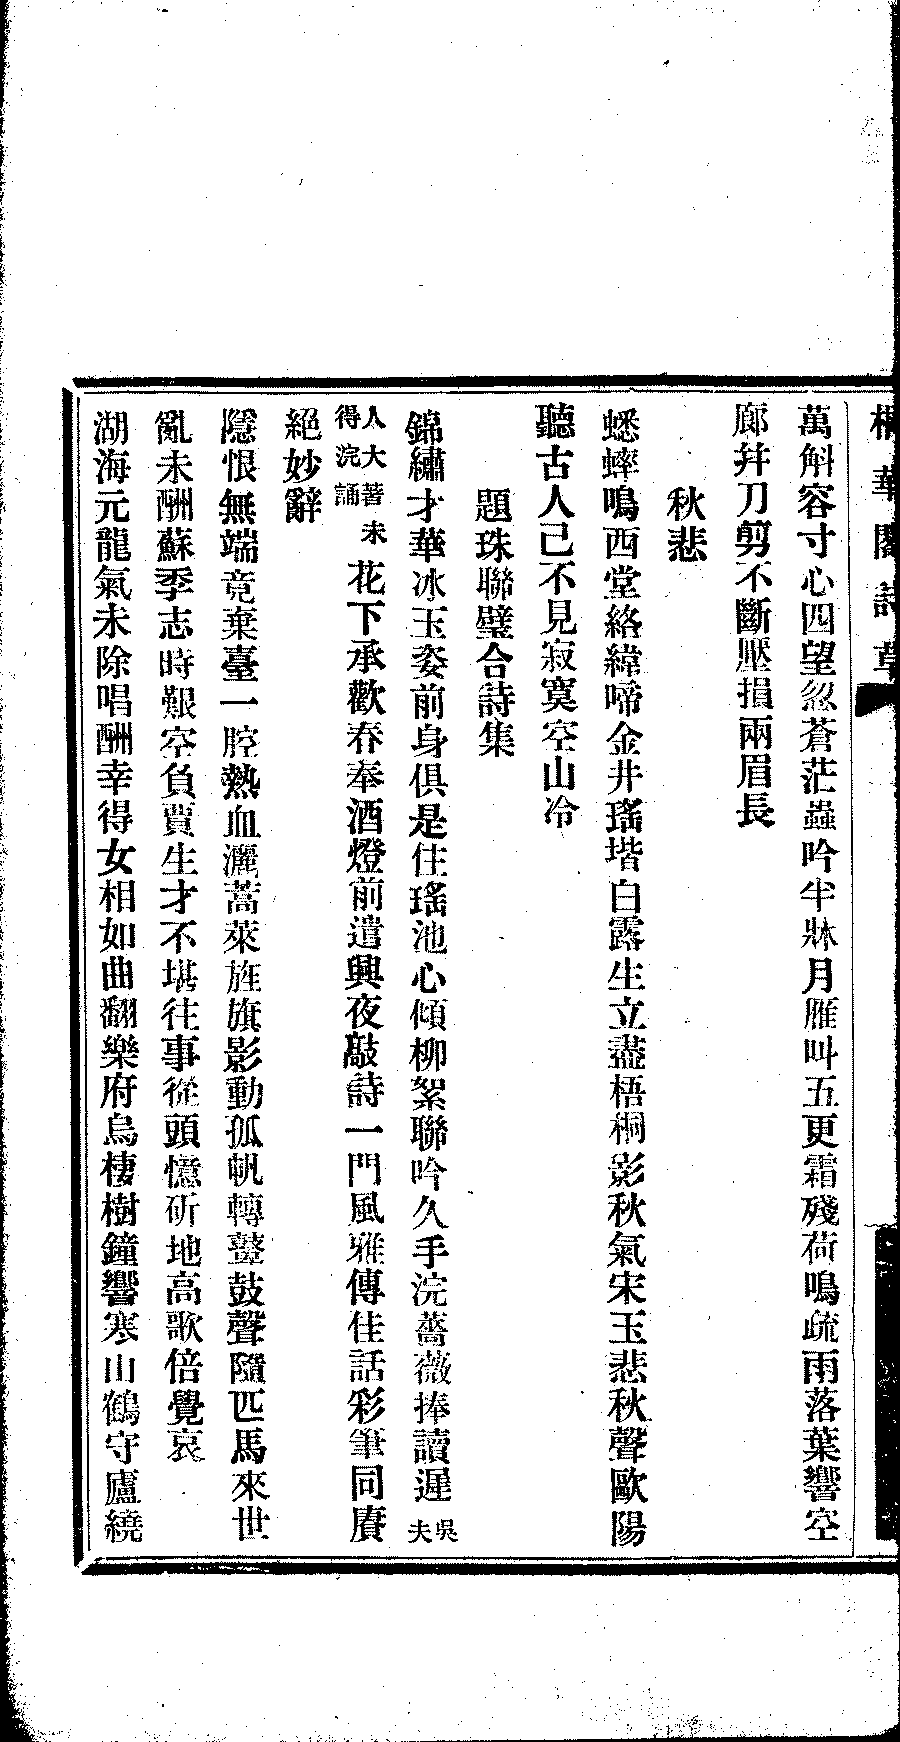 桐華閣詩草
萬斛容寸心四望忽蒼茫蟲吟半牀月雁叫五更霜殘荷鳴疏雨落葉響空
廊幷刀剪不斷壓損兩眉長
秋悲
蟋蟀鳴西堂絡緯啼金井瑤堦白露生立盡梧桐影秋氣宋玉悲秋聲歐陽
聽古人已不見寂寞空山冷
題珠聯璧合詩集
錦繡才華冰玉姿前身俱是住瑤池心傾柳絮聯吟久手浣薔薇捧讀遲吳夫
人大著未得浣誦花下承歡春奉酒燈前遣興夜敲詩一門風雅傳佳話彩筆同賡
絕妙辭
隱恨無端竟棄臺一腔熱血灑蒿萊旌旗影動孤帆轉鼙鼓聲隨匹馬來世
亂未酬蘇季志時艱空負賈生才不堪往事從頭憶斫地高歌倍覺哀
湖海元龍氣未除唱酬幸得女相如曲翻樂府烏棲樹鐘響寒山鶴守廬繞